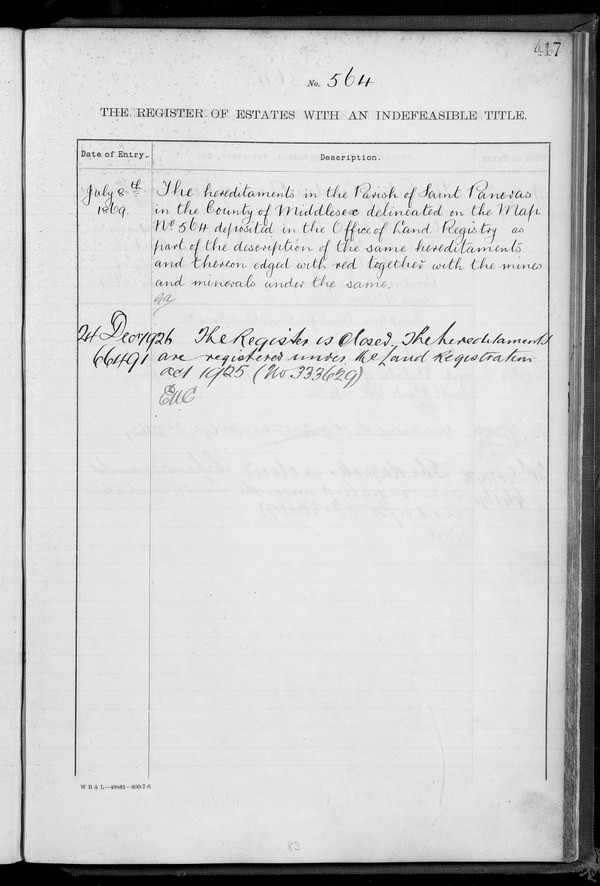 417
No. 564
THE REGISTER OF ESTATES WITH AN INDEFEASIBLE TITLE.
Date of Entry.
Description.
July 8th
1869.
The hereditaments in the Parish of Saint Pancras
in the County of Middlesex delineated on the Map
No 564 deposited in the Office of Land Registry as
part of the description of the same hereditaments
and thereon edged with red together with the mines
and minerals under the same.
24 Decr 1926 The Register is closed. The hereditaments
66491 are registered under the Land Registration
act 1925 (No 333629)
W B & L—48681—800-7-6